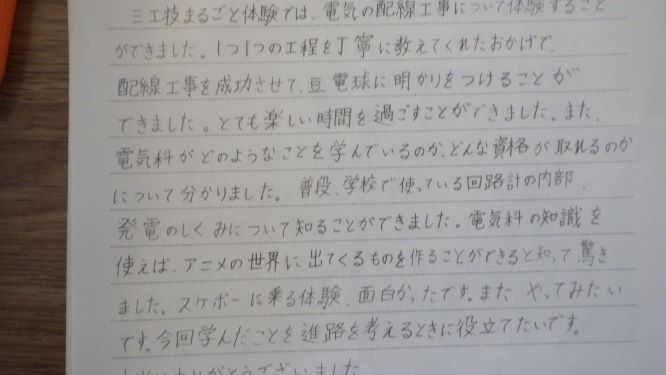 三工技まるごと体験では、電気の配線工事について体験すること
ができました。1つ1つの工程を丁寧に教えてくれたおかげで、
配線工事を成功させて、豆電球に明かりをつけることが
できました。とても楽しい時間を過ごすことができました。また、
電気科がどのようなことを学んでいるのか、どんな資格が取れるのか
について分かりました。普段、学校で使っている回路計の内部、
発電のしくみについて知ることができました。電気科の知識を
使えば、アニメの世界に出てくるものを作ることができると知って驚き
ました。スケボーに乗る体験、面白かったです。また、やってみたい
です。今回学んだことを進路を考えるときに役立てたいです。
ありがとうございました